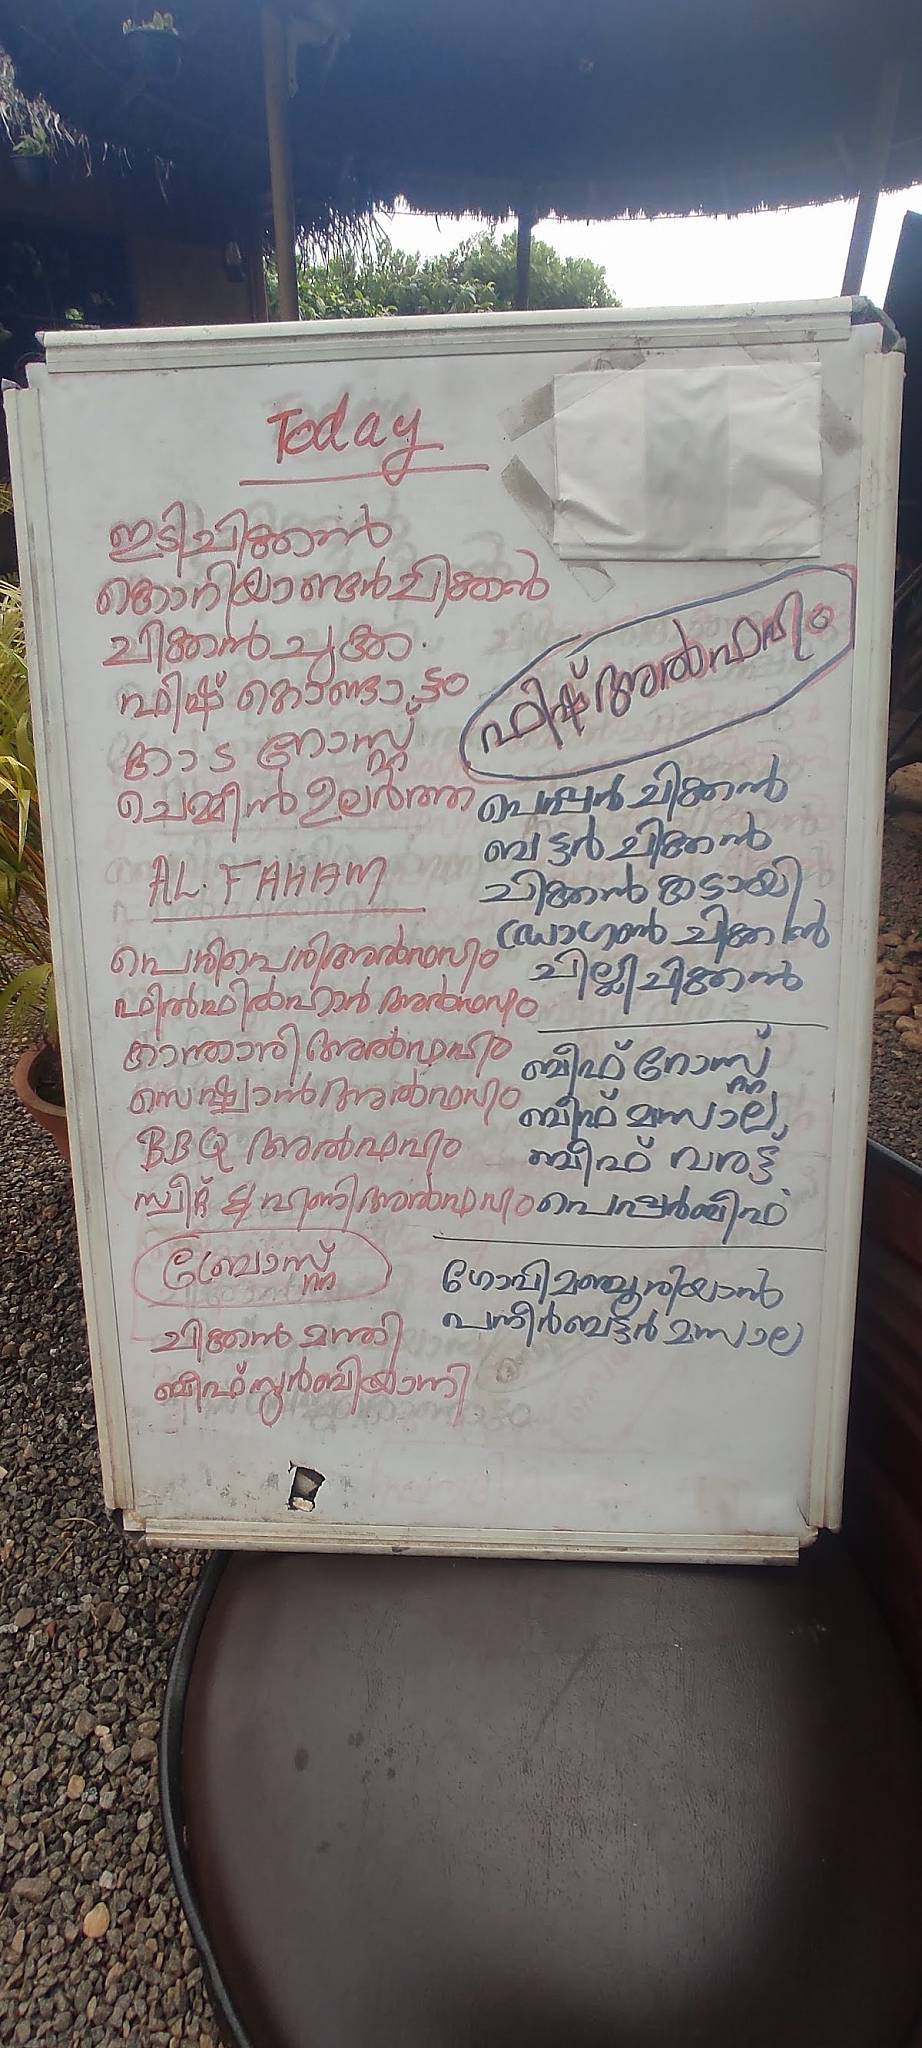 Today
ഇടിചിക്കൻ
കൊറിയാണ്ടർ ചിക്കൻ
ചിക്കൻ ചുക്ക.
ഫിഷ് കൊണ്ടാട്ടം
കാട റോസ്റ്റ്
ചെമ്മീൻ ഉലർത്ത്
AL. FAHAM
പെരിപെരി അൽഫഹം
ഫിൽഫിൽഹാൻ അൽഫഹം
കാന്താരി അൽഫഹം
സെഷ്വാൻ അൽഫഹം
BBQ അൽഫഹം
സ്വീറ്റ് & ഹണി അൽഫഹം
ബ്രോസ്റ്റ്
ചിക്കൻ മന്തി
ബീഫ് സുർബിയാനി
ഫിഷ് അൽഫഹം
പെപ്പർ ചിക്കൻ
ബട്ടർ ചിക്കൻ
ചിക്കൻ കടായി
ഡ്രാഗൺ ചിക്കൻ
ചില്ലി ചിക്കൻ
ബീഫ് റോസ്റ്റ്
ബീഫ് മസാല
ബീഫ് വരട്ട്
പെപ്പർ ബീഫ്
ഗോബി മഞ്ചൂരിയാൻ
പനീർ ബട്ടർ മസാല